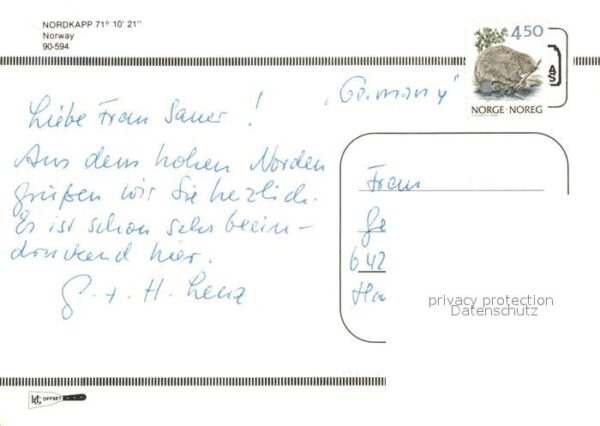 NORDKAPP 71° 10' 21"
Norway
90-594
4.50
NORGE·NOREG
"Germany"
Liebe Frau Sauer!
Aus dem hohen Norden
grüßen wir Sie herzlich.
Es ist schon sehr beein-
druckend hier.
G. + H. Lenz
Frau
Ge
642
Ha
privacy protection
Datenschutz
OFFSET